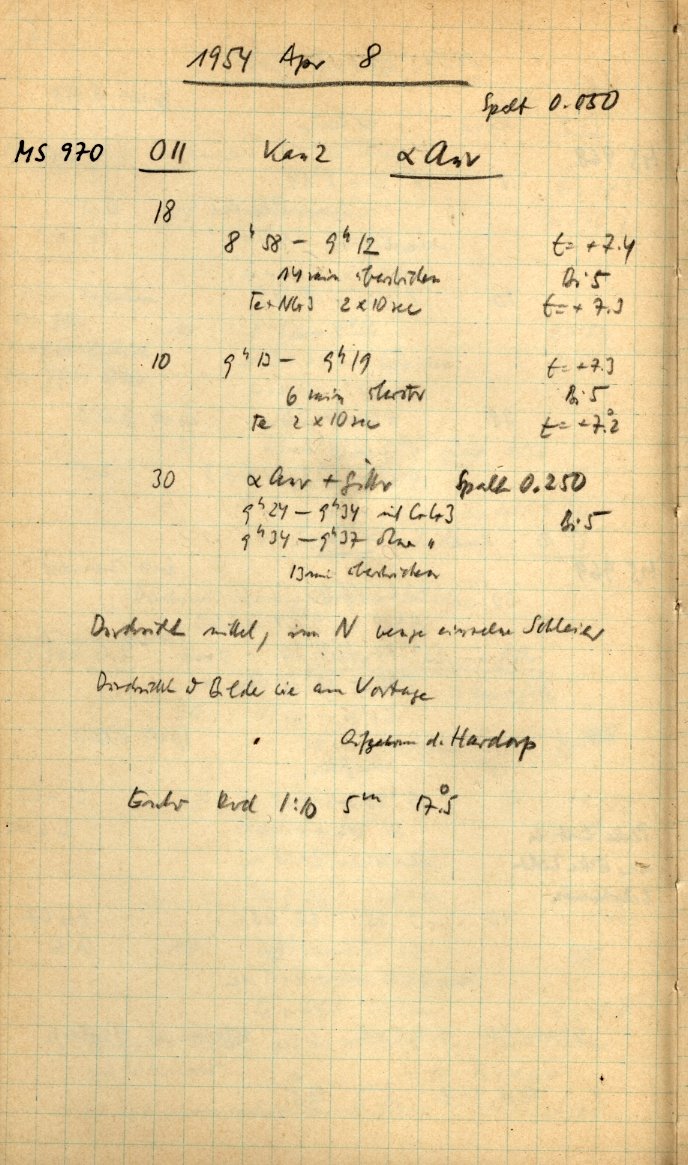 1954 Apr 8
Spalt 0.050
MS 970 O11 Kam 2 α Aur
18
8ʰ58 – 9ʰ12 t= +7.4
14 min überstrichen Bi 5
2 x 10 sec t= + 7.3
10 9ʰ13 – 9ʰ19 t= +7.3
6 min Bi 5
Te 2 x 10 sec t= +7.2
30 α Aur + Gitter Spalt 0.250
9ʰ24 – 9ʰ34 mit Bi 5
9ʰ34 – 9ʰ37 ohne "
13 min überstrichen
Durchsicht mittel, im N wenige einzelne Schleier
Durchsicht & Bilder wie am Vortage
Aufgenommen d. Hardorp
Rod 1:10 5ᵐ 17.5